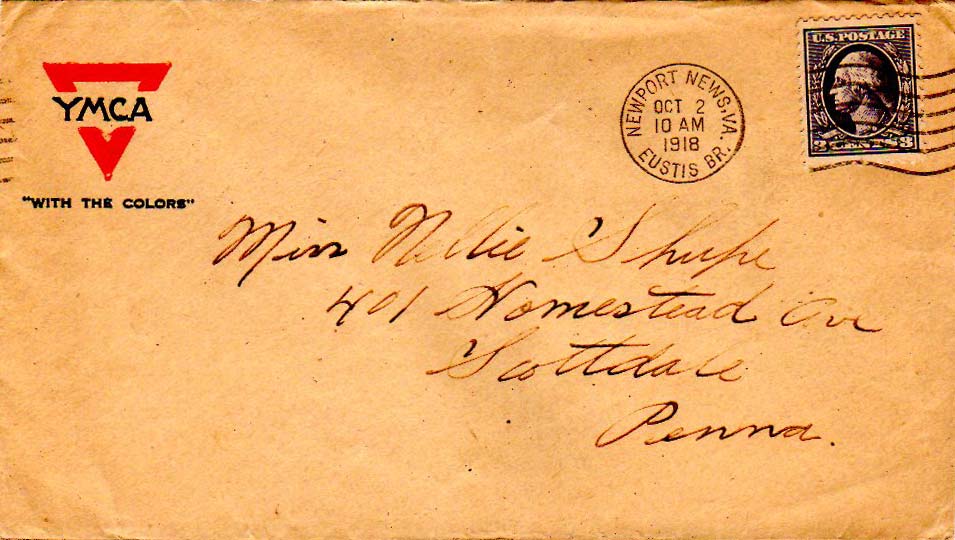 YMCA
"WITH THE COLORS"
NEWPORT NEWS, VA.
OCT 2
10 AM
1918
EUSTIS BR.
U.S. POSTAGE
3 CENTS 3
Miss Nellie Shupe
401 Homestead Ave
Scottdale
Penna.